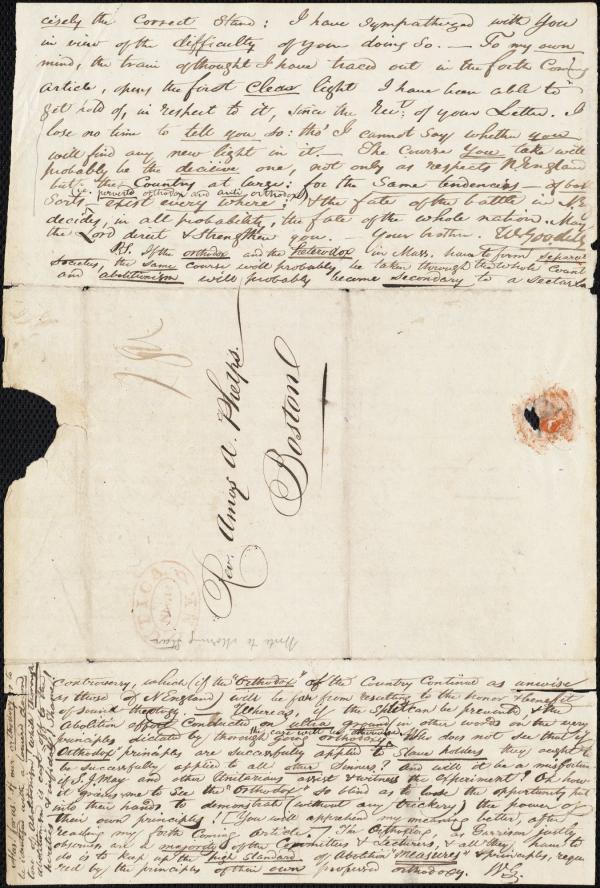 cisely the Correct Stand: I have Sympathized with you
in view of the difficulty of your doing so. — To my own
mind, the train of thought I have traced out in the forth Com'g
article, opens the first Clear light I have been able to
get hold of, in respect to it, since the rec't of your Letter. I
lose no time to tell you so: tho' I cannot say whether you
will find any new light in it. — The Course you take will
probably be the decisive one, not only as respects N. England
but the Country at large: for the Same tendencies — of both
(i.e. perverted orthodox and anti orthodox)
Sorts, exist every where; & the fate of the battle in N.E.
decides, in all probability, the fate of the whole nation. May
the Lord direct & Strengthen you. — Your brother. W Goodell
P.S. If the orthodox and the Heterodox in Mass. have to form separate
Societies, the same course will probably be taken through the whole Count
and abolitionism will probably become secondary to a Secta
Rev. Amos A. Phelps.
Boston
UTICA
N.Y.
Note to Morning Star
controversy, which (if the "Orthodox" of the Country Continue as unwise
as those of N England) will be far from resulting to the honor & benefit
of sound theology. Whereas if the Split can be prevented & the
Abolition effort Conducted on ultra ground, in other words on the very
principles dictated by thorough going orthodoxy, Who does not see that if
the case will be otherwise.
"Orthodox" principles are successfully applied to Slave holders they ought to
be successfully applied to all other Sinners? And will it be a misfortune
if S. J. May and other Unitarians assist & witness the experiment? Oh how
it grieves me to See the "Orthodox" so blind as to lose the opportunity put
into their hands to demonstrate (without any trickery) the power of
their own principles! [You will apprehend my meaning better, after
reading my forth Coming Article.] The Orthodox, as Garrison justly
observes are a majority of the Committees & Lecturers, & all they have to
do is to keep up the high Standard of Abolition "measures" & principles, requi
red by the principles of their own professed orthodoxy. W.G.